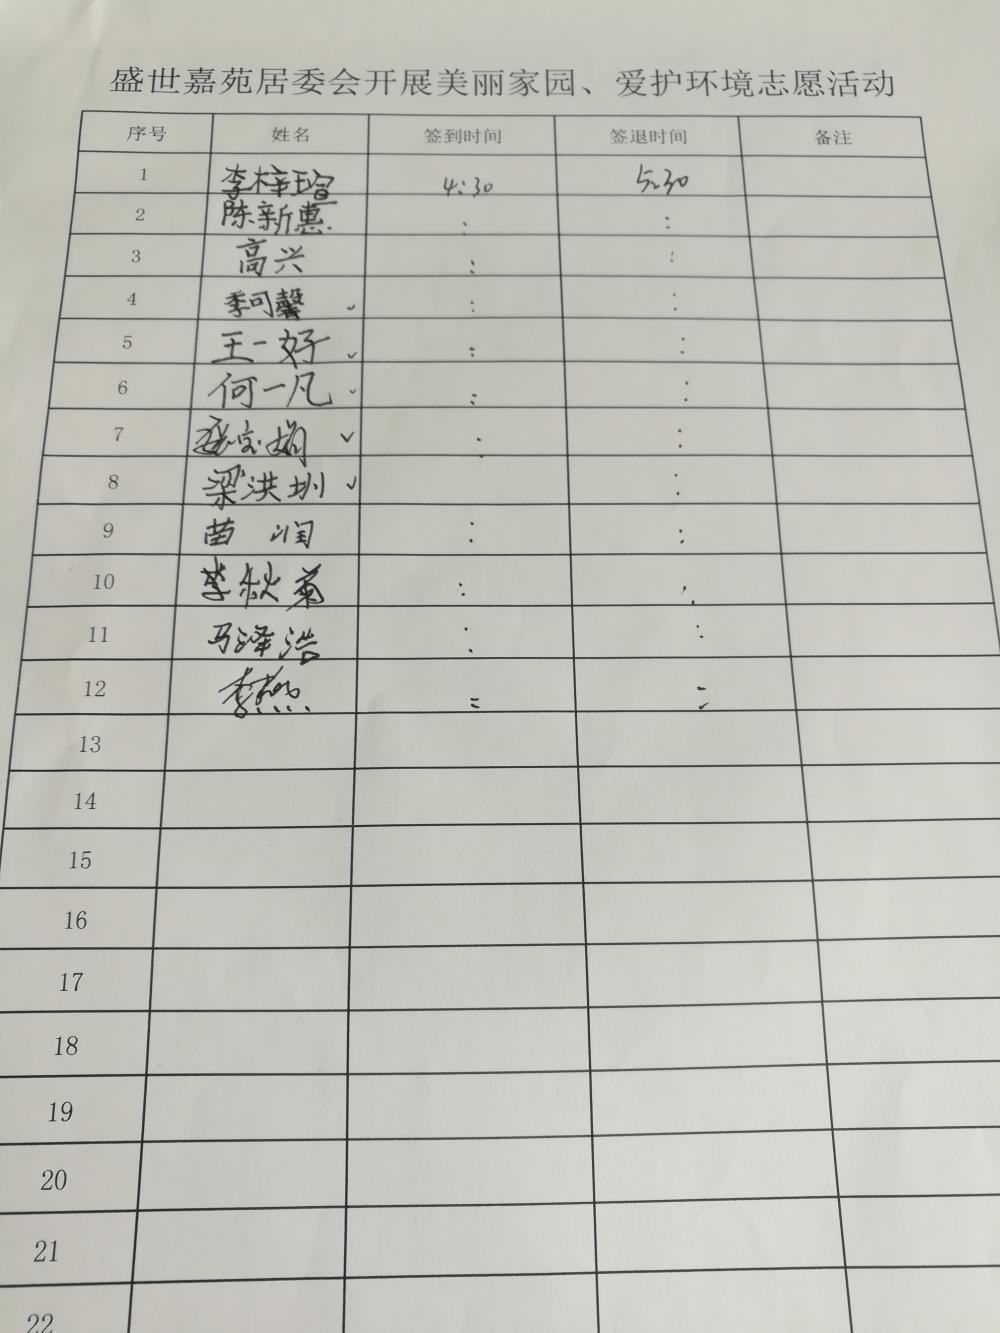 盛世嘉苑居委会开展美丽家园、爱护环境志愿活动
序号 姓名 签到时间 签退时间 备注
1 李梓瑄 4:30 5:30
2 陈新惠 : :
3 高兴 : :
4 季可馨 ˇ : :
5 王一好 ˇ : :
6 何一凡 ˇ : :
7 ˇ : :
8 梁洪圳 ˇ :
9 苗润 : :
10 李秋菊 : :
11 马泽浩 : :
12 李燕 : :
13
14
15
16
17
18
19
20
21
22